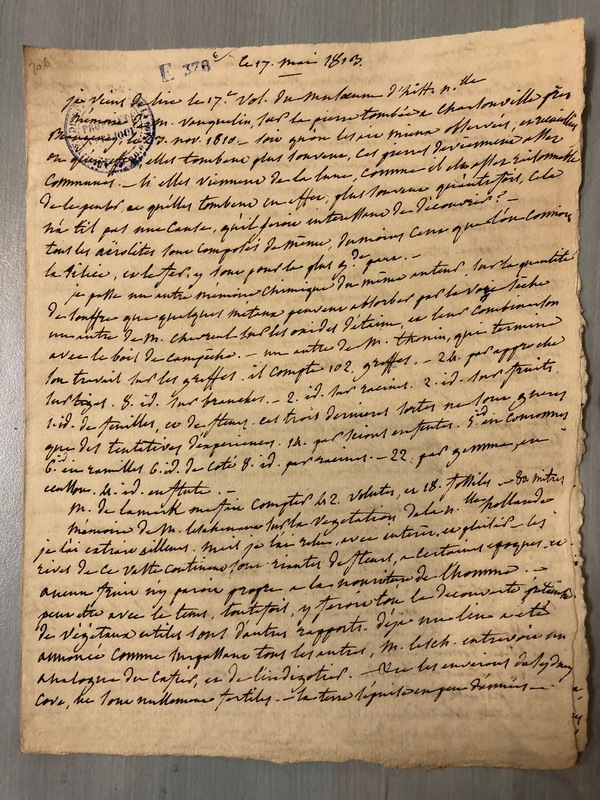 E 378 6 le 17. mai 1813.
je viens de lire le 17e vol. du museum d'hist. n.lle
Mémoire de M. Vauquelin, sur la pierre tombée a Charsonville près
Beaugency, le 23 nov. 1810 — soit qu'on les ait mieux observées, et recueillies
ou qu'en effet elles tombent plus souvent, ces pierres deviennent assez
Communes. — Si elles viennent de la lune, comme il est assez raisonnable
de le penser, et qu'elles tombent en effet, plus souvent qu'autrefois, cela
n'a t'il pas une Cause, qu'il seroit interessant de découvrir? —
tous les aërolites sont composés de même, du moins ceux que l'on connoit
la Silice, et le fer, y sont pour la plus gde part. —
je passe un autre mémoire chimique du même auteur, sur la quantité
de souffre que quelques metaux peuvent absorber par la voye sèche
un autre de M. chevreul sur les oxides d'étain, et leur combinaison
avec le bois de campêche. — un autre de M. Thouin, qui termine
son travail sur les greffes. il compte 102 greffes. — 24. par approche
sur tiges. 8. id. sur branches. — 2. id. sur racines. 2. id. sur fruits.
1. id. de feuilles, et de fleurs. ces trois dernieres sortes ne sont guères
que des tentatives d'experiences. 14. par scions en fentes. 5. id. en couronnes
6. id. en ramilles 6. id. de coté 8. id. par racines. — 22. par gemmes, en
ecusson. 4. id. en flute. —
M. de lamarck me fait compter 42. volutes, et 18. fossiles. — 80 mitres
Mémoire de M. leschenault sur la vegetation de la n.lle hollande
je l'ai extrait ailleurs. mais je l'ai relu avec interet, et plaisir. les
rives de ce vaste continent sont riantes de fleurs, a certaines epoques, et
aucun fruit n'y paroit propre a la nouriture de l'homme. —
peut être avec le tems, toutefois, y feroit on la decouverte
de végetaux utiles sous d'autres rapports. déja un lin a été
annoncé comme surpassant tous les autres, M. lesch. entrevoit un
analogue du Cafier, et de l'indigotier. — les environs de Sydney
Cove, ne sont nullement fertiles — la terre s'épuise en peu d'années —